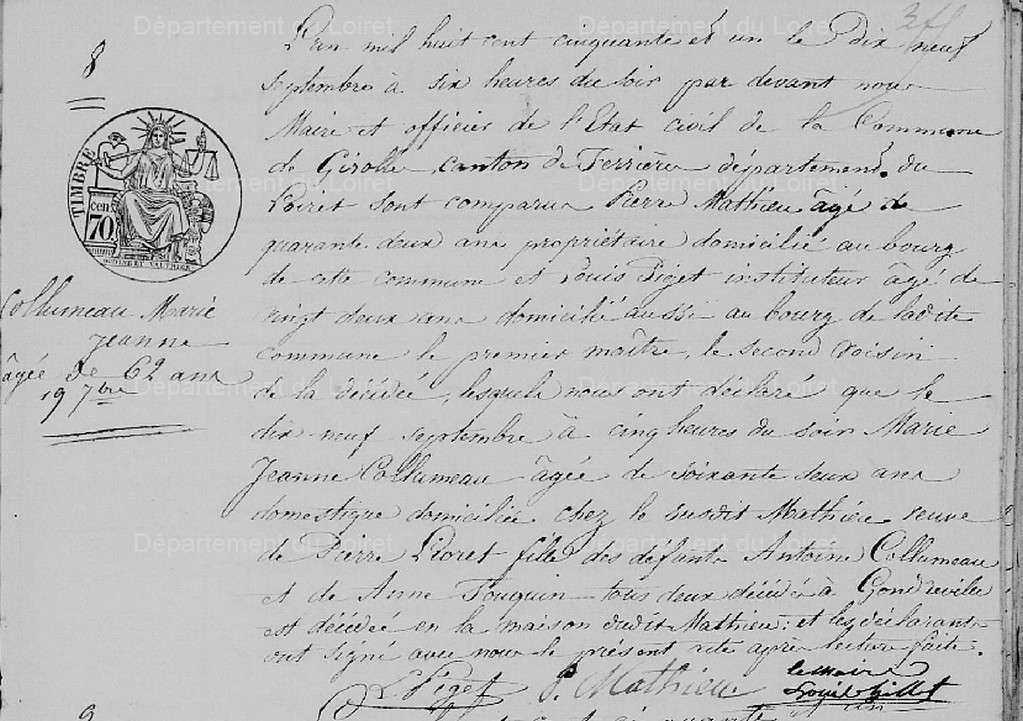 8
L'an mil huit cent cinquante et un le Dix neuf
septembre à six heures du soir par devant nous
Maire et officier de l'Etat civil de la Commune
de Girolles canton de Ferrières département du
Loiret sont comparus Pierre Mathieu âgé de
quarante deux ans propriétaire domicilié au bourg
de cette commune et Louis Piget instituteur âgé de
vingt deux ans domicilié aussi au bourg de ladite
commune le premier maître, le second voisin
de la décédée, lesquels nous ont déclaré que le
dix neuf septembre à cinq heures du soir Marie
Jeanne Collumeau âgée de soixante deux ans
domestique domiciliée chez le susdit Mathieu veuve
de Pierre Lioret fille des defunts Antoine Collumeau
et de Anne Fouquin tous deux décédés à Gondreville
est décédée en la maison dudit Mathieu; et les déclarants
ont signé avec nous le présent acte après lecture faite.
L Piget P. Mathieu le Maire
TIMBRE
cen
70
Collumeau Marie
Jeanne
âgée de 62 ans
19 7bre
9
Département du Loiret
Département du Loiret
Département du Loiret
Département du Loiret
Département du Loiret
Département du Loiret
Département du Loiret
Département du Loiret